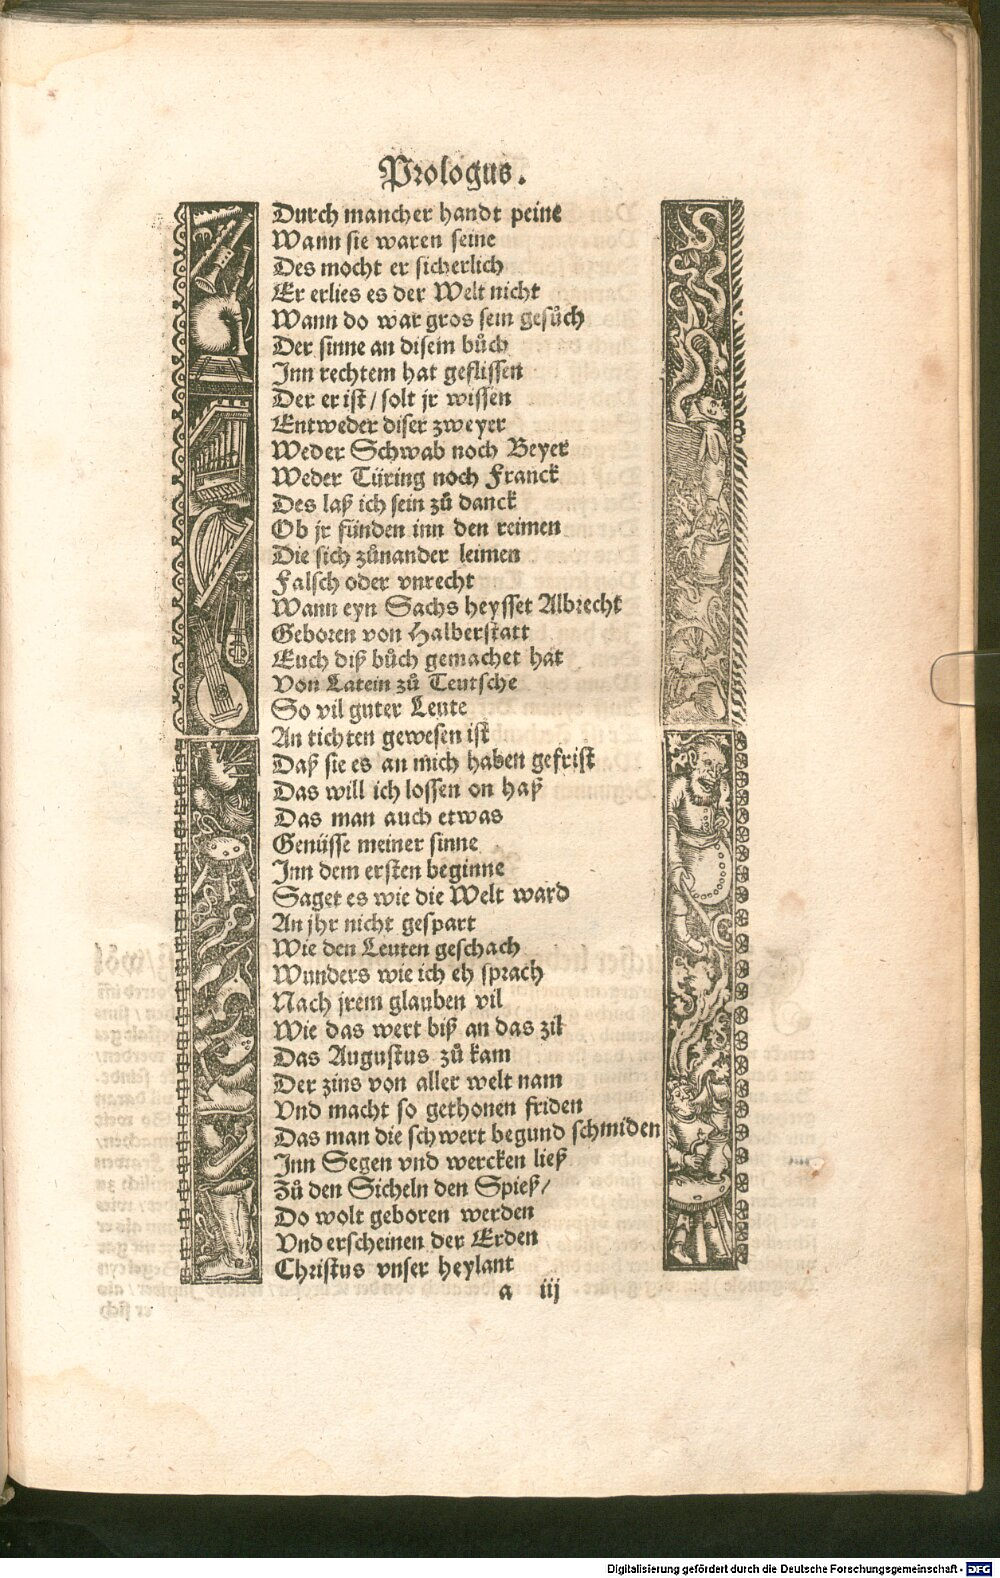 Prologus.
Durch mancher handt peine
Wann sie waren seine
Des mocht er sicherlich
Er erlies es der Welt nicht
Wann do war gros sein gesuͦch
Der sinne an disem buͦch
Inn rechtem hat geflissen
Der er ist / solt jr wissen
Entweder diser zweyer
Weder Schwab noch Beyer
Weder Türing noch Franck
Des laß ich sein zuͦ danck
Ob jr fünden inn den reimen
Die sich zuͦnander leimen
Falsch oder vnrecht
Wann eyn Sachs heysset Albrecht
Geboren von Halberstatt
Euch diß buͦch gemachet hat
Von Latein zuͦ Teutsche
So vil guter Leute
An tichten gewesen ist
Daß sie es an mich haben gefrist
Das will ich lossen on haß
Das man auch etwas
Genüsse meiner sinne
Inn dem ersten beginne
Saget es wie die Welt ward
An jhr nicht gespart
Wie den Leuten geschach
Wunders wie ich eh sprach
Nach jrem glauben vil
Wie das wert biß an das zil
Das Augustus zuͦ kam
Der zins von aller welt nam
Vnd macht so gethonen friden
Das man die schwert begund schmiden
Inn Segen vnd wercken ließ
Zuͦ den Sicheln den Spieß /
Do wolt geboren werden
Vnd erscheinen der Erden
Christus vnser heylant
a iij
Digitalisierung gefördert durch die Deutsche Forschungsgemeinschaft - DFG